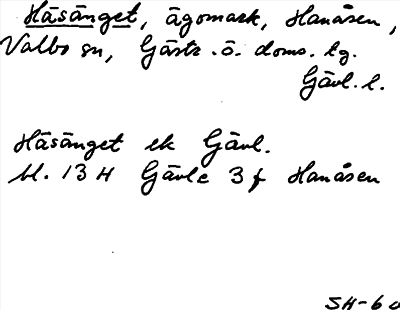 Häsänget, ägomark, Hanåsen,
Valbo sn, Gästr. ö. doms. tg.
Gävl. l.
Häsänget ek Gävl.
bl. 13 H Gävle 3 f Hanåsen
SH-60